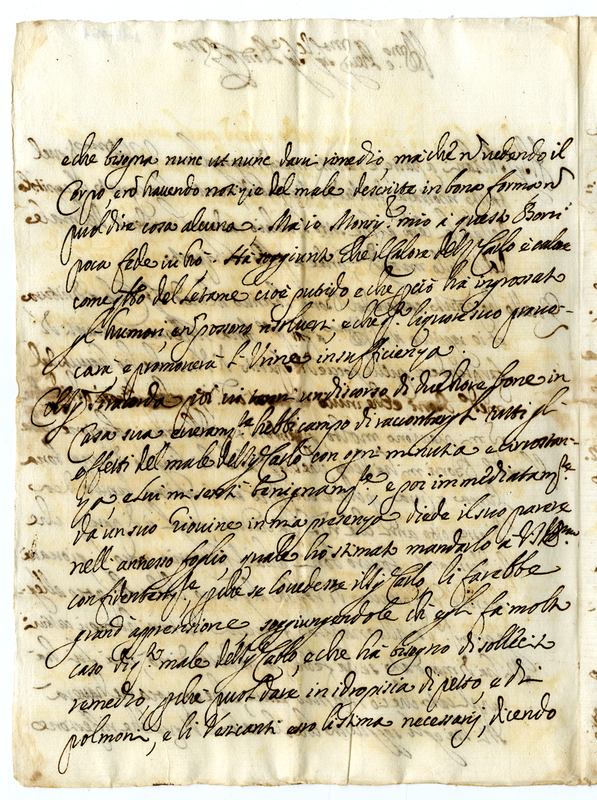 e che bisogna nunc ut nunc darvi rimedio, ma che nõ vedendo il
Corpo, e nõ havendo notizie del male descritte in bona forma nõ
può dire cosa alcuna. Ma io Monsig.r mio à questi Borri
poca fede in loro. Ha soggiunto che il Calore del Sig.r Carlo è calore
come q̃llo del letame cioè putrido, e che p̃ciò ha ingrossati
gl'humori, e nõ possono risolversi, e che q̃sto liquore suo preuer-
carà e promoverà l'Urine in sufficienza.
Col Sig.r poi un discorso di due hore bone in
Casa sua e veram.te hebbi campo di raccontargli tutti gl'
effetti del male del Sig.r Carlo con ogni minutia e circostan-
za, e lui mi sentì benignam.te, e poi immediatam.te
da un suo Giovine in mia presenza diede il suo parere
nell'annesso foglio, quale ho stimato mandarlo a V.S. Ill.ma
confidentem.te, p̃che se lo vedesse il Sig.r Carlo, li farebbe
grand'apprensione soggiungendole che egli fa molto
caso di q.to male del Sig.r Carlo, e che ha bisogno di sollecito
remedio, p̃che può dare in idropisia di petto, e di
polmoni, e li Vescicanti esso li stima necessarij, dicendo